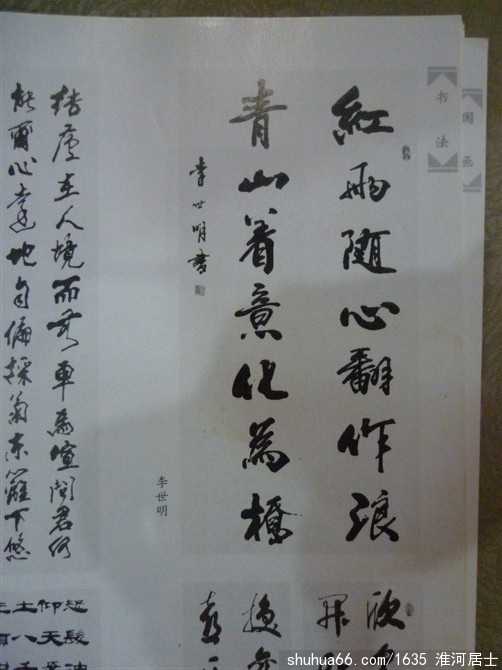 书法
国画
紅雨随心翻作浪
青山着意化為橋
李世明書
李世明
结廬在人境而無車馬喧問君何
能爾心遠地自偏採菊东籬下悠
欣
换
shuhua66.com/1635 淮河居士